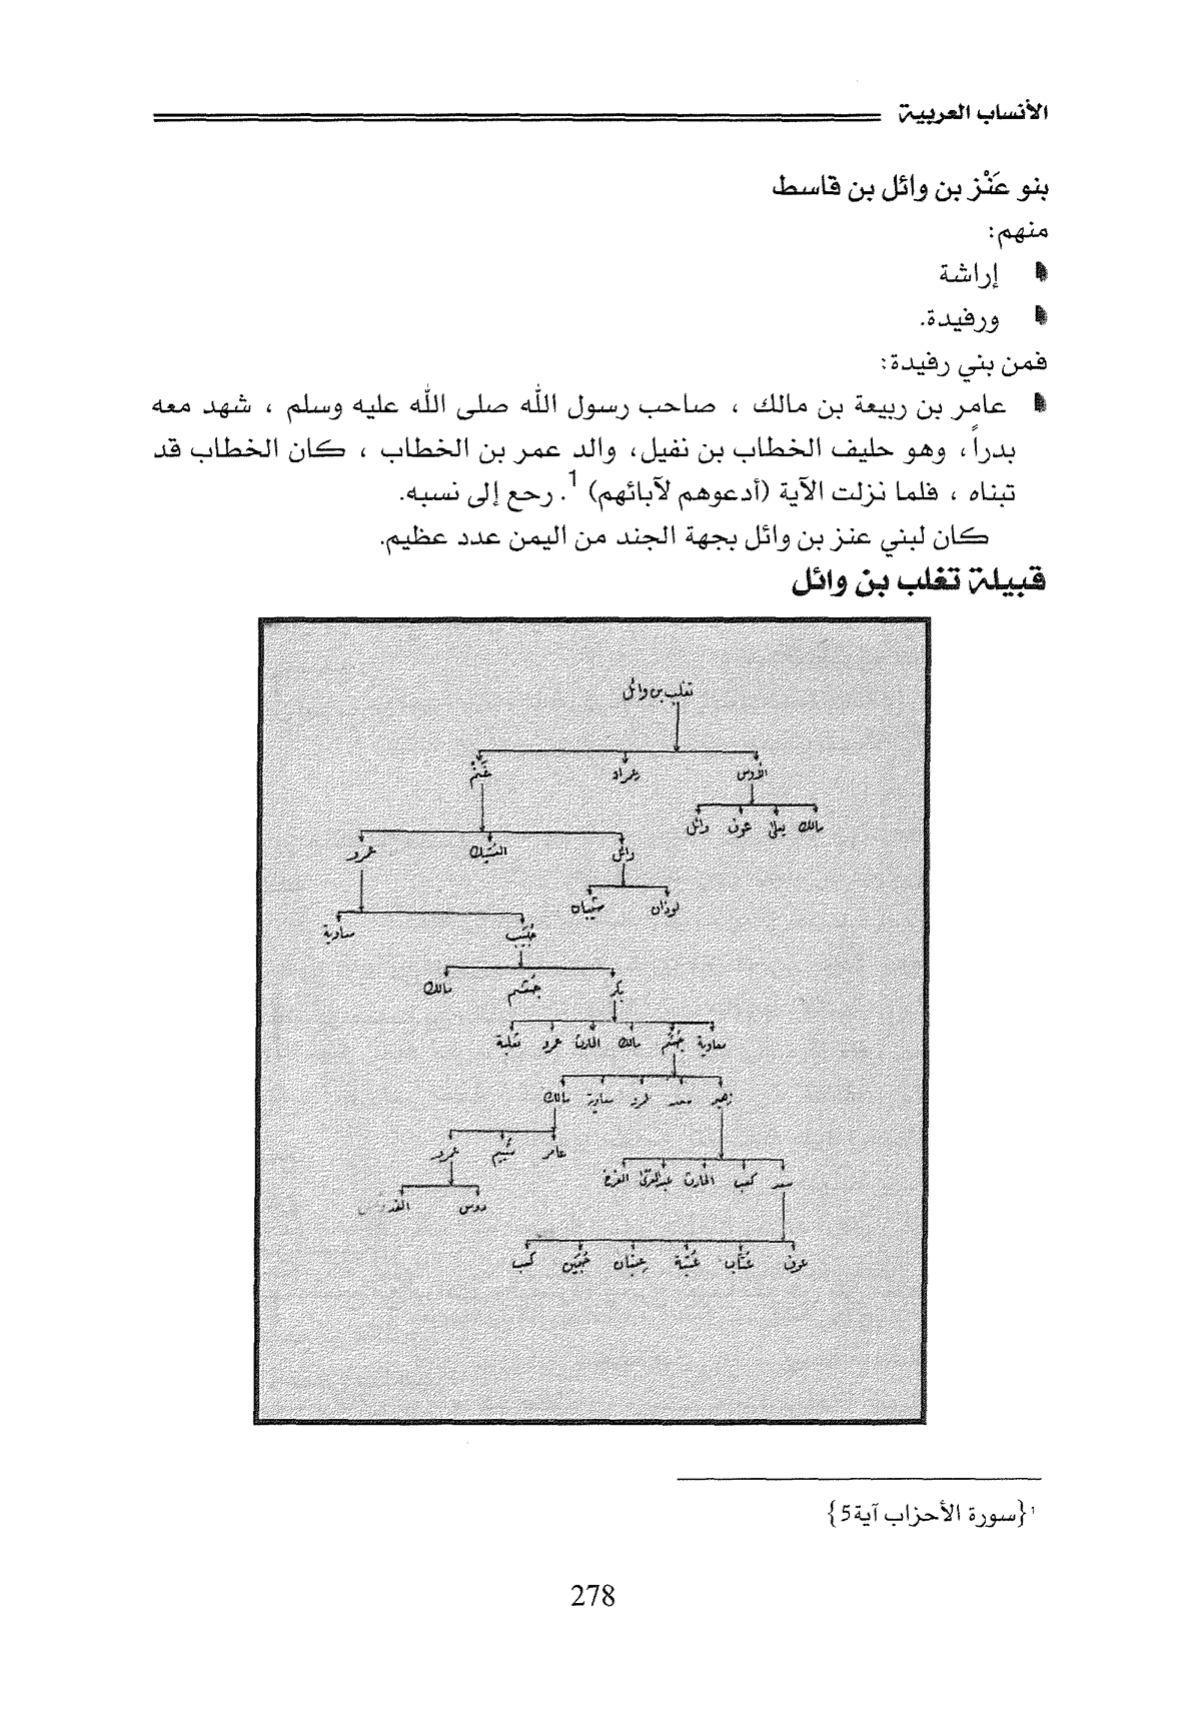 الأنساب العربية
بنو عَنْز بن وائل بن قاسط
منهم:
إراشة
ورفيدة.
فمن بني رفيدة:
عامر بن ربيعة بن مالك ، صاحب رسول الله صلى الله عليه وسلم ، شهد معه
بدراً، وهو حليف الخطاب بن نفيل، والد عمر بن الخطاب ، كان الخطاب قد
تبناه ، فلما نزلت الآية (أدعوهم لآبائهم) 1. رحع إلى نسبه.
كان لبني عنز بن وائل بجهة الجند من اليمن عدد عظيم.
قبيلة تغلب بن وائل
تغلب بن وائل
الأوس عمران غَنْم
مالك يعلى عوف وائل
وائل العتيك عمرو
لوذان شيبان
حُبَيْب معاوية
بكر جُشَم مالك
معاوية جُشَم مالك الحارث عمرو ثعلبة
زهير سعد معاوية مالك
عامر عمرو
سعد كعب الحارث عبدالعزى
دوس
عوف عتّاب عُتبة عِتبان كعب
1 {سورة الأحزاب آية5}
278